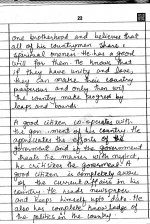 22
one brotherhood and believes that
all of his countrymen share
national interest. He has a good
will for them. He knows that
if they have unity and love,
they can make their country
prosperous and only then will
the country make progress by
leaps and bounds.
A good citizen co-operates with
the government of his country. He
appreciates the efforts of the
government and if the government
treats the matter with neglect,
he criticizes the government. A
good citizen is completely aware
of the current affairs in his
country. He reads newspaper
and keeps himself upto date. He
also has complete knowledge of
the politics in the country